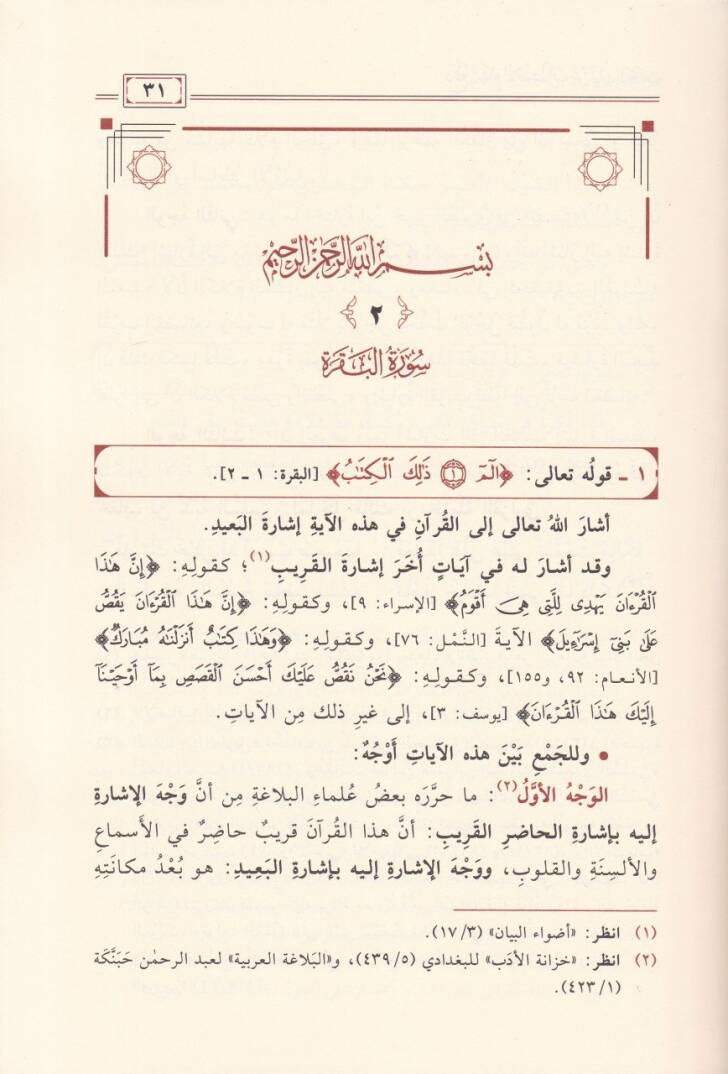 ٣١
بِسْمِ اللهِ الرَّحْمٰنِ الرَّحِيمِ
٢
سُورَةُ البَقَرَةِ
١ - قولُه تعالى: ﴿الٓمٓ ۝١ ذَٰلِكَ ٱلْكِتَٰبُ﴾ [البقرة: ١ - ٢].
أشارَ اللهُ تعالى إلى القُرآنِ في هذه الآيةِ إشارةَ البَعيدِ.
وقد أشارَ له في آيَاتٍ أُخَرَ إشارةَ القَرِيبِ(١)؛ كقولِهِ: ﴿إِنَّ هَٰذَا
ٱلْقُرْءَانَ يَهْدِى لِلَّتِى هِىَ أَقْوَمُ﴾ [الإسراء: ٩]، وكقولِهِ: ﴿إِنَّ هَٰذَا ٱلْقُرْءَانَ يَقُصُّ
عَلَىٰ بَنِىٓ إِسْرَٰٓءِيلَ﴾ الآيةَ [النَّمْل: ٧٦]، وكقولِهِ: ﴿وَهَٰذَا كِتَٰبٌ أَنزَلْنَٰهُ مُبَارَكٌ﴾
[الأنعام: ٩٢، و١٥٥]، وكقولِهِ: ﴿نَحْنُ نَقُصُّ عَلَيْكَ أَحْسَنَ ٱلْقَصَصِ بِمَآ أَوْحَيْنَآ
إِلَيْكَ هَٰذَا ٱلْقُرْءَانَ﴾ [يوسف: ٣]، إلى غيرِ ذلك مِن الآياتِ.
• وللجَمْعِ بَيْنَ هذه الآياتِ أَوْجُهٌ:
الوَجْهُ الأوَّلُ(٢): ما حرَّرَه بعضُ عُلماءِ البلاغةِ مِن أنَّ وَجْهَ الإشارةِ
إليه بإشارةِ الحاضرِ القَرِيبِ: أنَّ هذا القُرآنَ قريبٌ حاضِرٌ في الأَسماعِ
والألسِنَةِ والقلوبِ، ووَجْهَ الإشارةِ إليه بإشارةِ البَعِيدِ: هو بُعْدُ مكانَتِهِ
(١) انظر: «أضواء البيان» (١٧/٣).
(٢) انظر: «خزانة الأدَب» للبغدادي (٤٣٩/٥)، و«البَلاغة العربية» لعبد الرحمٰن حَبَنَّكَة
(٤٢٣/١).